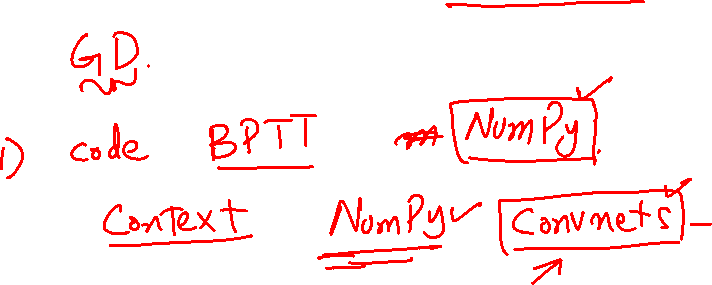 GD.
1) code BPTT NumPy.
Context NumPy Convnets